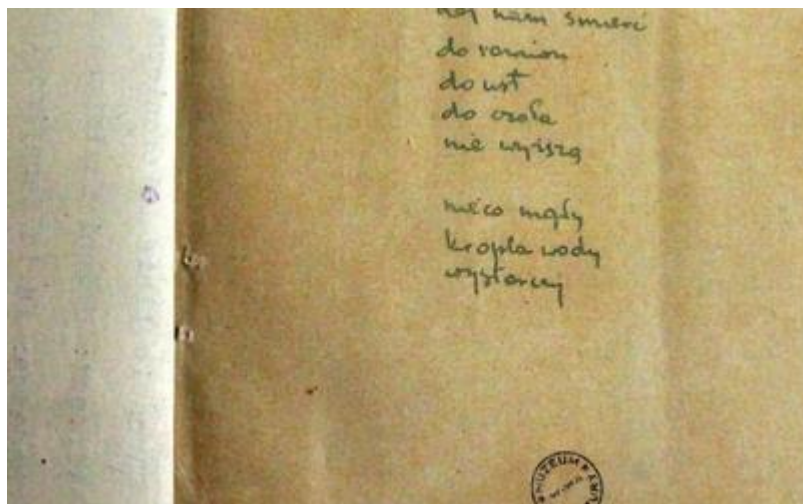 nam śmierć
do ramion
do ust
do czoła
nie wyższą

nieco mąki
kropla wody
wystarczy
MUZEUM